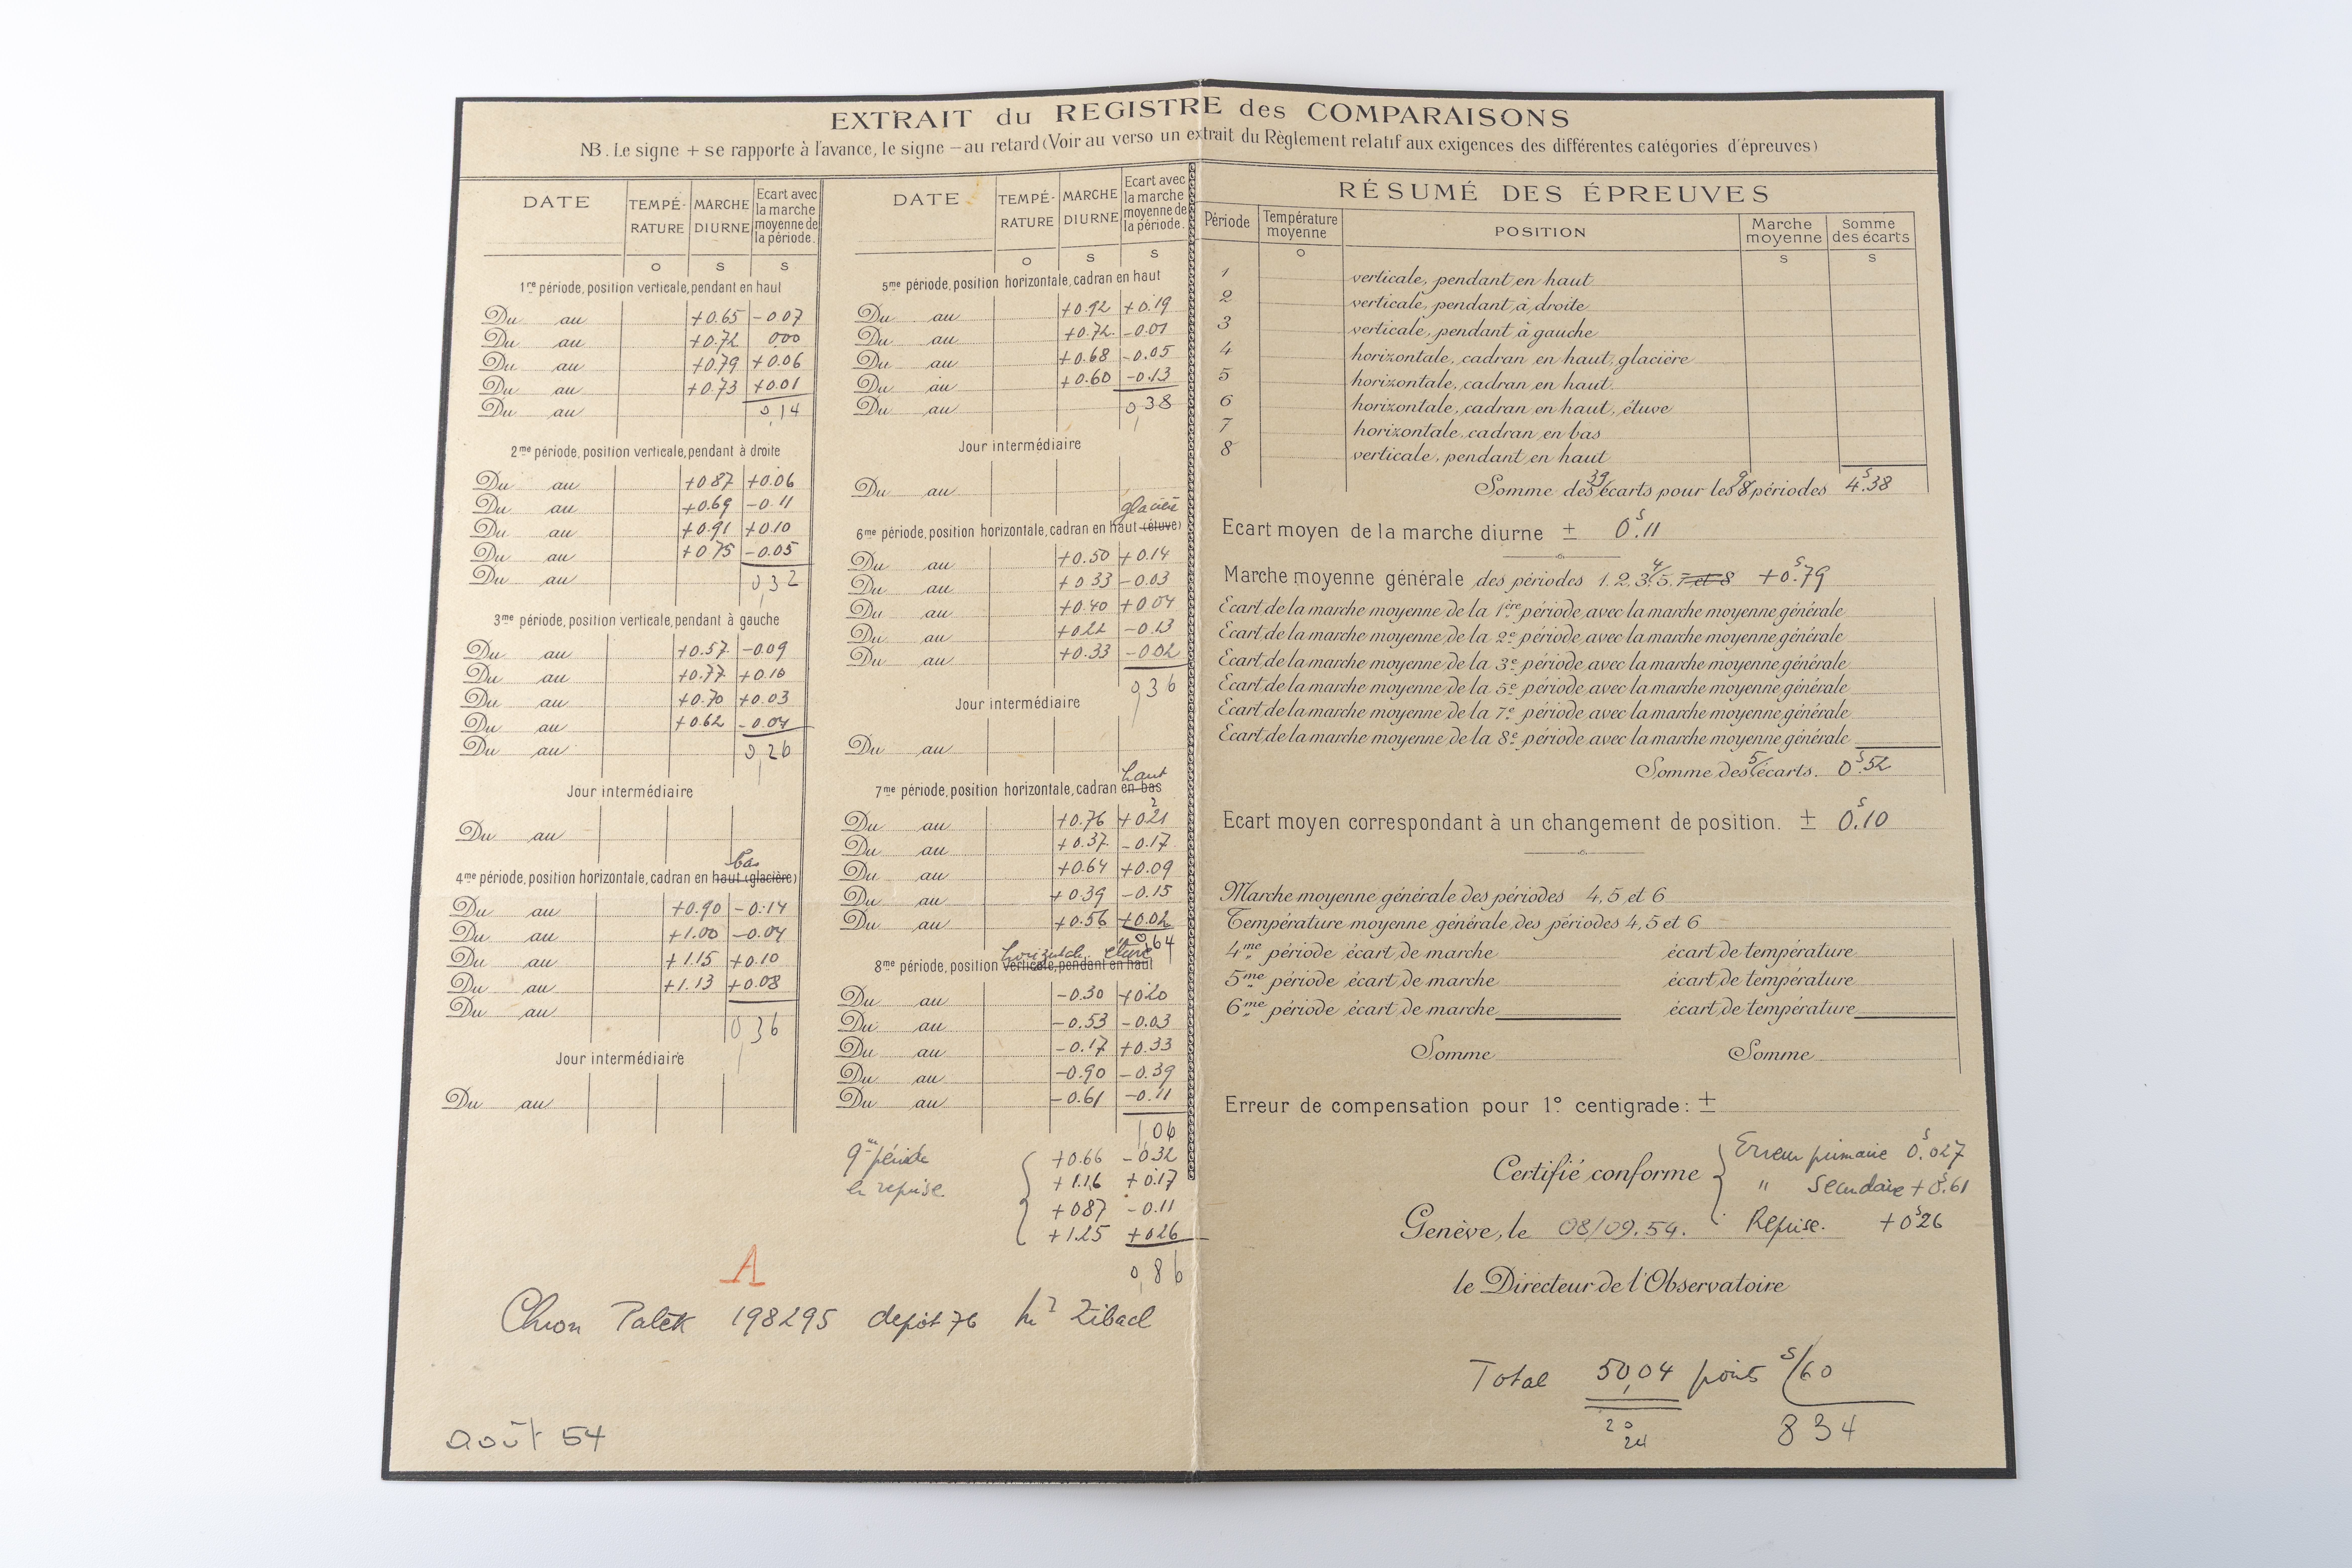 EXTRAIT du REGISTRE des COMPARAISONS
NB. Le signe + se rapporte à l'avance, le signe — au retard (Voir au verso un extrait du Règlement relatif aux exigences des différentes catégories d'épreuves)
DATE TEMPÉRATURE MARCHE DIURNE Ecart avec la marche moyenne de la période.
o s s
1re période, position verticale, pendant en haut
Du au +0.65 -0.07
Du au +0.72 0.00
Du au +0.79 +0.06
Du au +0.73 +0.01
Du au 0,14
2me période, position verticale, pendant à droite
Du au +0.87 +0.06
Du au +0.69 -0.11
Du au +0.91 +0.10
Du au +0.75 -0.05
Du au 0,32
3me période, position verticale, pendant à gauche
Du au +0.57 -0.09
Du au +0.77 +0.10
Du au +0.70 +0.03
Du au +0.62 -0.04
Du au 0,26
Jour intermédiaire
Du au
bas
4me période, position horizontale, cadran en haut (glacière)
Du au +0.90 -0.14
Du au +1.00 -0.04
Du au +1.15 +0.10
Du au +1.13 +0.08
Du au 0,36
Jour intermédiaire
Du au
DATE TEMPÉRATURE MARCHE DIURNE Ecart avec la marche moyenne de la période.
o s s
5me période, position horizontale, cadran en haut
Du au +0.92 +0.19
Du au +0.72 -0.01
Du au +0.68 -0.05
Du au +0.60 -0.13
Du au 0,38
Jour intermédiaire
Du au
glacière
6me période, position horizontale, cadran en haut (étuve)
Du au +0.50 +0.14
Du au +0.33 -0.03
Du au +0.40 +0.04
Du au +0.22 -0.13
Du au +0.33 -0.02
0,36
Jour intermédiaire
Du au
haut
7me période, position horizontale, cadran en bas
Du au +0.76 +0.21
Du au +0.37 -0.17
Du au +0.64 +0.09
Du au +0.39 -0.15
Du au +0.56 +0.02
0,64
horizontale étuve
8me période, position verticale, pendant en haut
Du au -0.30 +0.20
Du au -0.53 -0.03
Du au -0.17 +0.33
Du au -0.90 -0.39
Du au -0.61 -0.11
1,06
9me période +0.66 -0.32
en reprise +1.16 +0.17
+0.87 -0.11
+1.25 +0.26
0,86
A
Chron Patek 198295 depôt 76 Zibach
août 54
RÉSUMÉ DES ÉPREUVES
Période Température moyenne POSITION Marche moyenne Somme des écarts
o s s
1 verticale, pendant en haut
2 verticale, pendant à droite
3 verticale, pendant à gauche
4 horizontale, cadran en haut, glacière
5 horizontale, cadran en haut.
6 horizontale, cadran en haut, étuve
7 horizontale, cadran en bas
8 verticale, pendant en haut
Somme des 39 écarts pour les 8 9 périodes 4s.38
Ecart moyen de la marche diurne ± 0s.11
Marche moyenne générale des périodes 1. 2, 3, 4, 5. 7 et 8 +0s.79
Ecart de la marche moyenne de la 1ère période avec la marche moyenne générale
Ecart de la marche moyenne de la 2e période avec la marche moyenne générale
Ecart de la marche moyenne de la 3e période avec la marche moyenne générale
Ecart de la marche moyenne de la 5e période avec la marche moyenne générale
Ecart de la marche moyenne de la 7e période avec la marche moyenne générale
Ecart de la marche moyenne de la 8e période avec la marche moyenne générale
Somme des 5 écarts. 0s.52
Ecart moyen correspondant à un changement de position. ± 0s.10
Marche moyenne générale des périodes 4, 5 et 6
Température moyenne générale des périodes 4, 5 et 6
4me période écart de marche écart de température
5me période écart de marche écart de température
6me période écart de marche écart de température
Somme Somme
Erreur de compensation pour 1° centigrade: ±
Certifié conforme Erreur primaire 0s.027
" Secondaire +0s.61
Genève, le 08/09.54. Reprise. +0s26
le Directeur de l'Observatoire
Total 50,04 points s/60
20
24
834